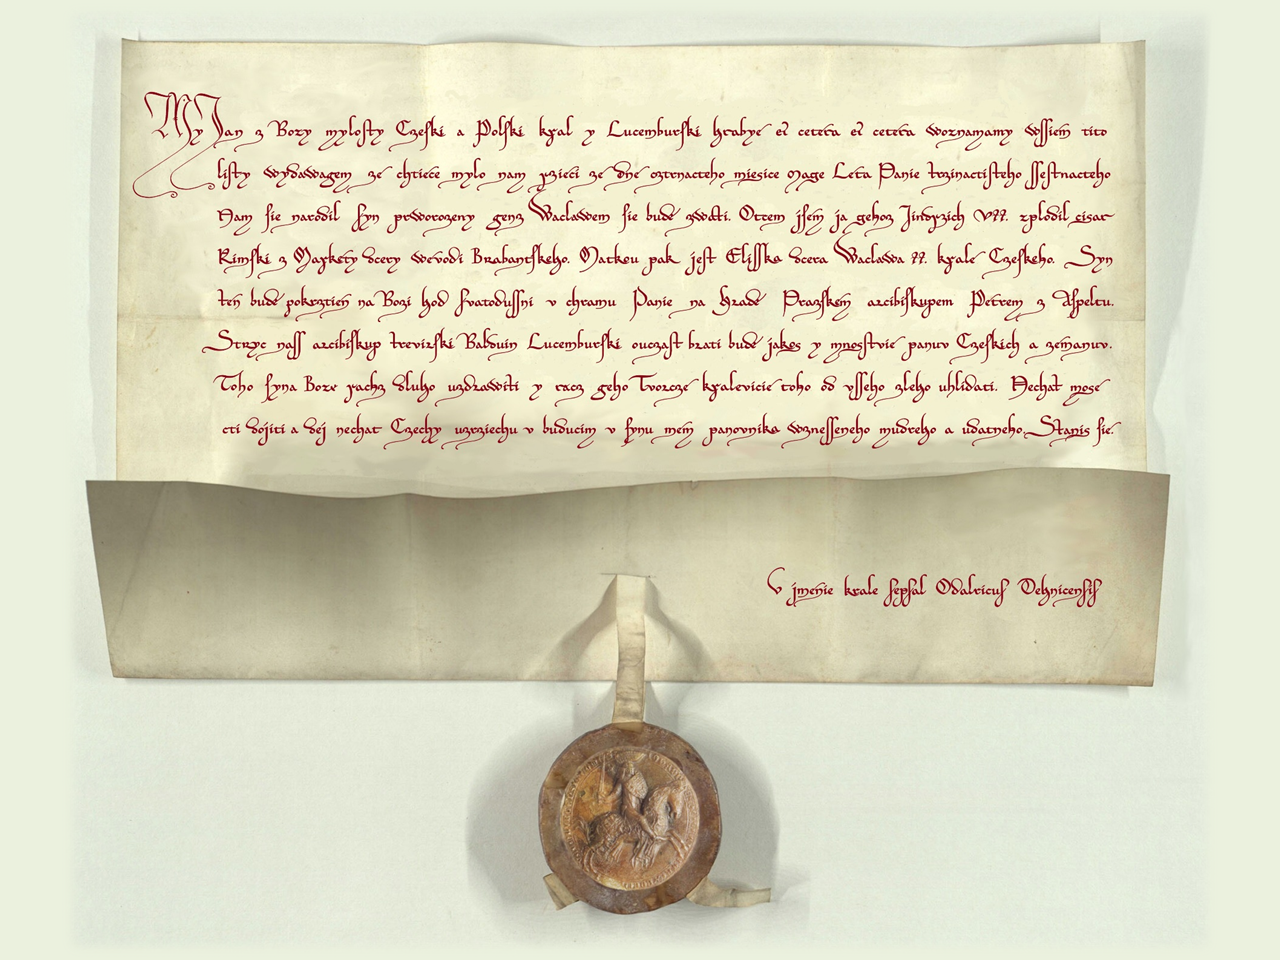 My Jan z Bozy mylosty Czeski a Polski kral y Lucemburski hrabye et cetera et cetera woznamamy wssiem tito
listy wydawagem ze chtiece mylo nam przieci ze dne cztrnacteho miesice mage Leta Panie trzinactisteho ssestnacteho
Nam sie narodil syn prworozeny genz Waclawem sie bude zwati. Otcem jsem ja gehoz Jindrzich VII. zplodil cisar
Rimski z Markety dcery wevodi Brabantskeho. Matkeu pak jest Elisska dcera Waclawa II. krale Czeskeho. Syn
ten bude pokrztien na Bozi hod swatodussni v chramu Panie na Hrade Prazskem arcibiskupem Petrem z Aspeltu.
Stryc nass arcibiskup trevirski Balduin Lucemburski ouczast brati bude jakos y mnostvie panuv Czeskich a zemanuv.
Toho syna Boze rachz dluho uzdrawiti y racz geho Tvorcze kralevicie toho od vsseho zleho uhlidati. Nechat moze
cti dojiti a dej nechat Czechy uzrziechu v buducim v synu mem panovnika wznesseneho mudreho a udatneho. Stanis sie.
V jmenie krale sepsal Odalricus